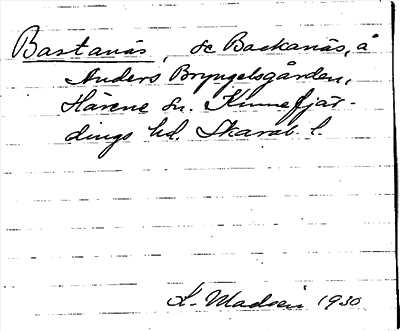 Bastanäs, se Backanäs, å
Anders Bryngelsgården,
Härene sn. Kinnefjär-
dings hd. Skarab. l.
K. Madsen 1930